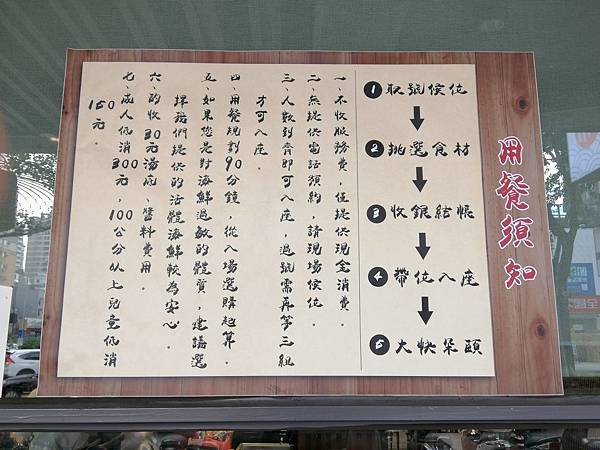 用餐須知
1 取號侯位
2 挑選食材
3 收銀結帳
4 帶位入座
5 大快朵頤
一、不收服務費，僅提供現金消費．
二、無提供電話預約，請現場侯位．
三、人數到齊即可入座，過號需再等三組
才可入座．
四、用餐規劃90分鐘，從入場選購起算．
五、如果您是對海鮮過敏的體質，建議選
擇我們提供的活體海鮮較為安心．
六、酌收30元湯底、醬料費用．
七、成人低消300元，100公分以上兒童低消
150元．